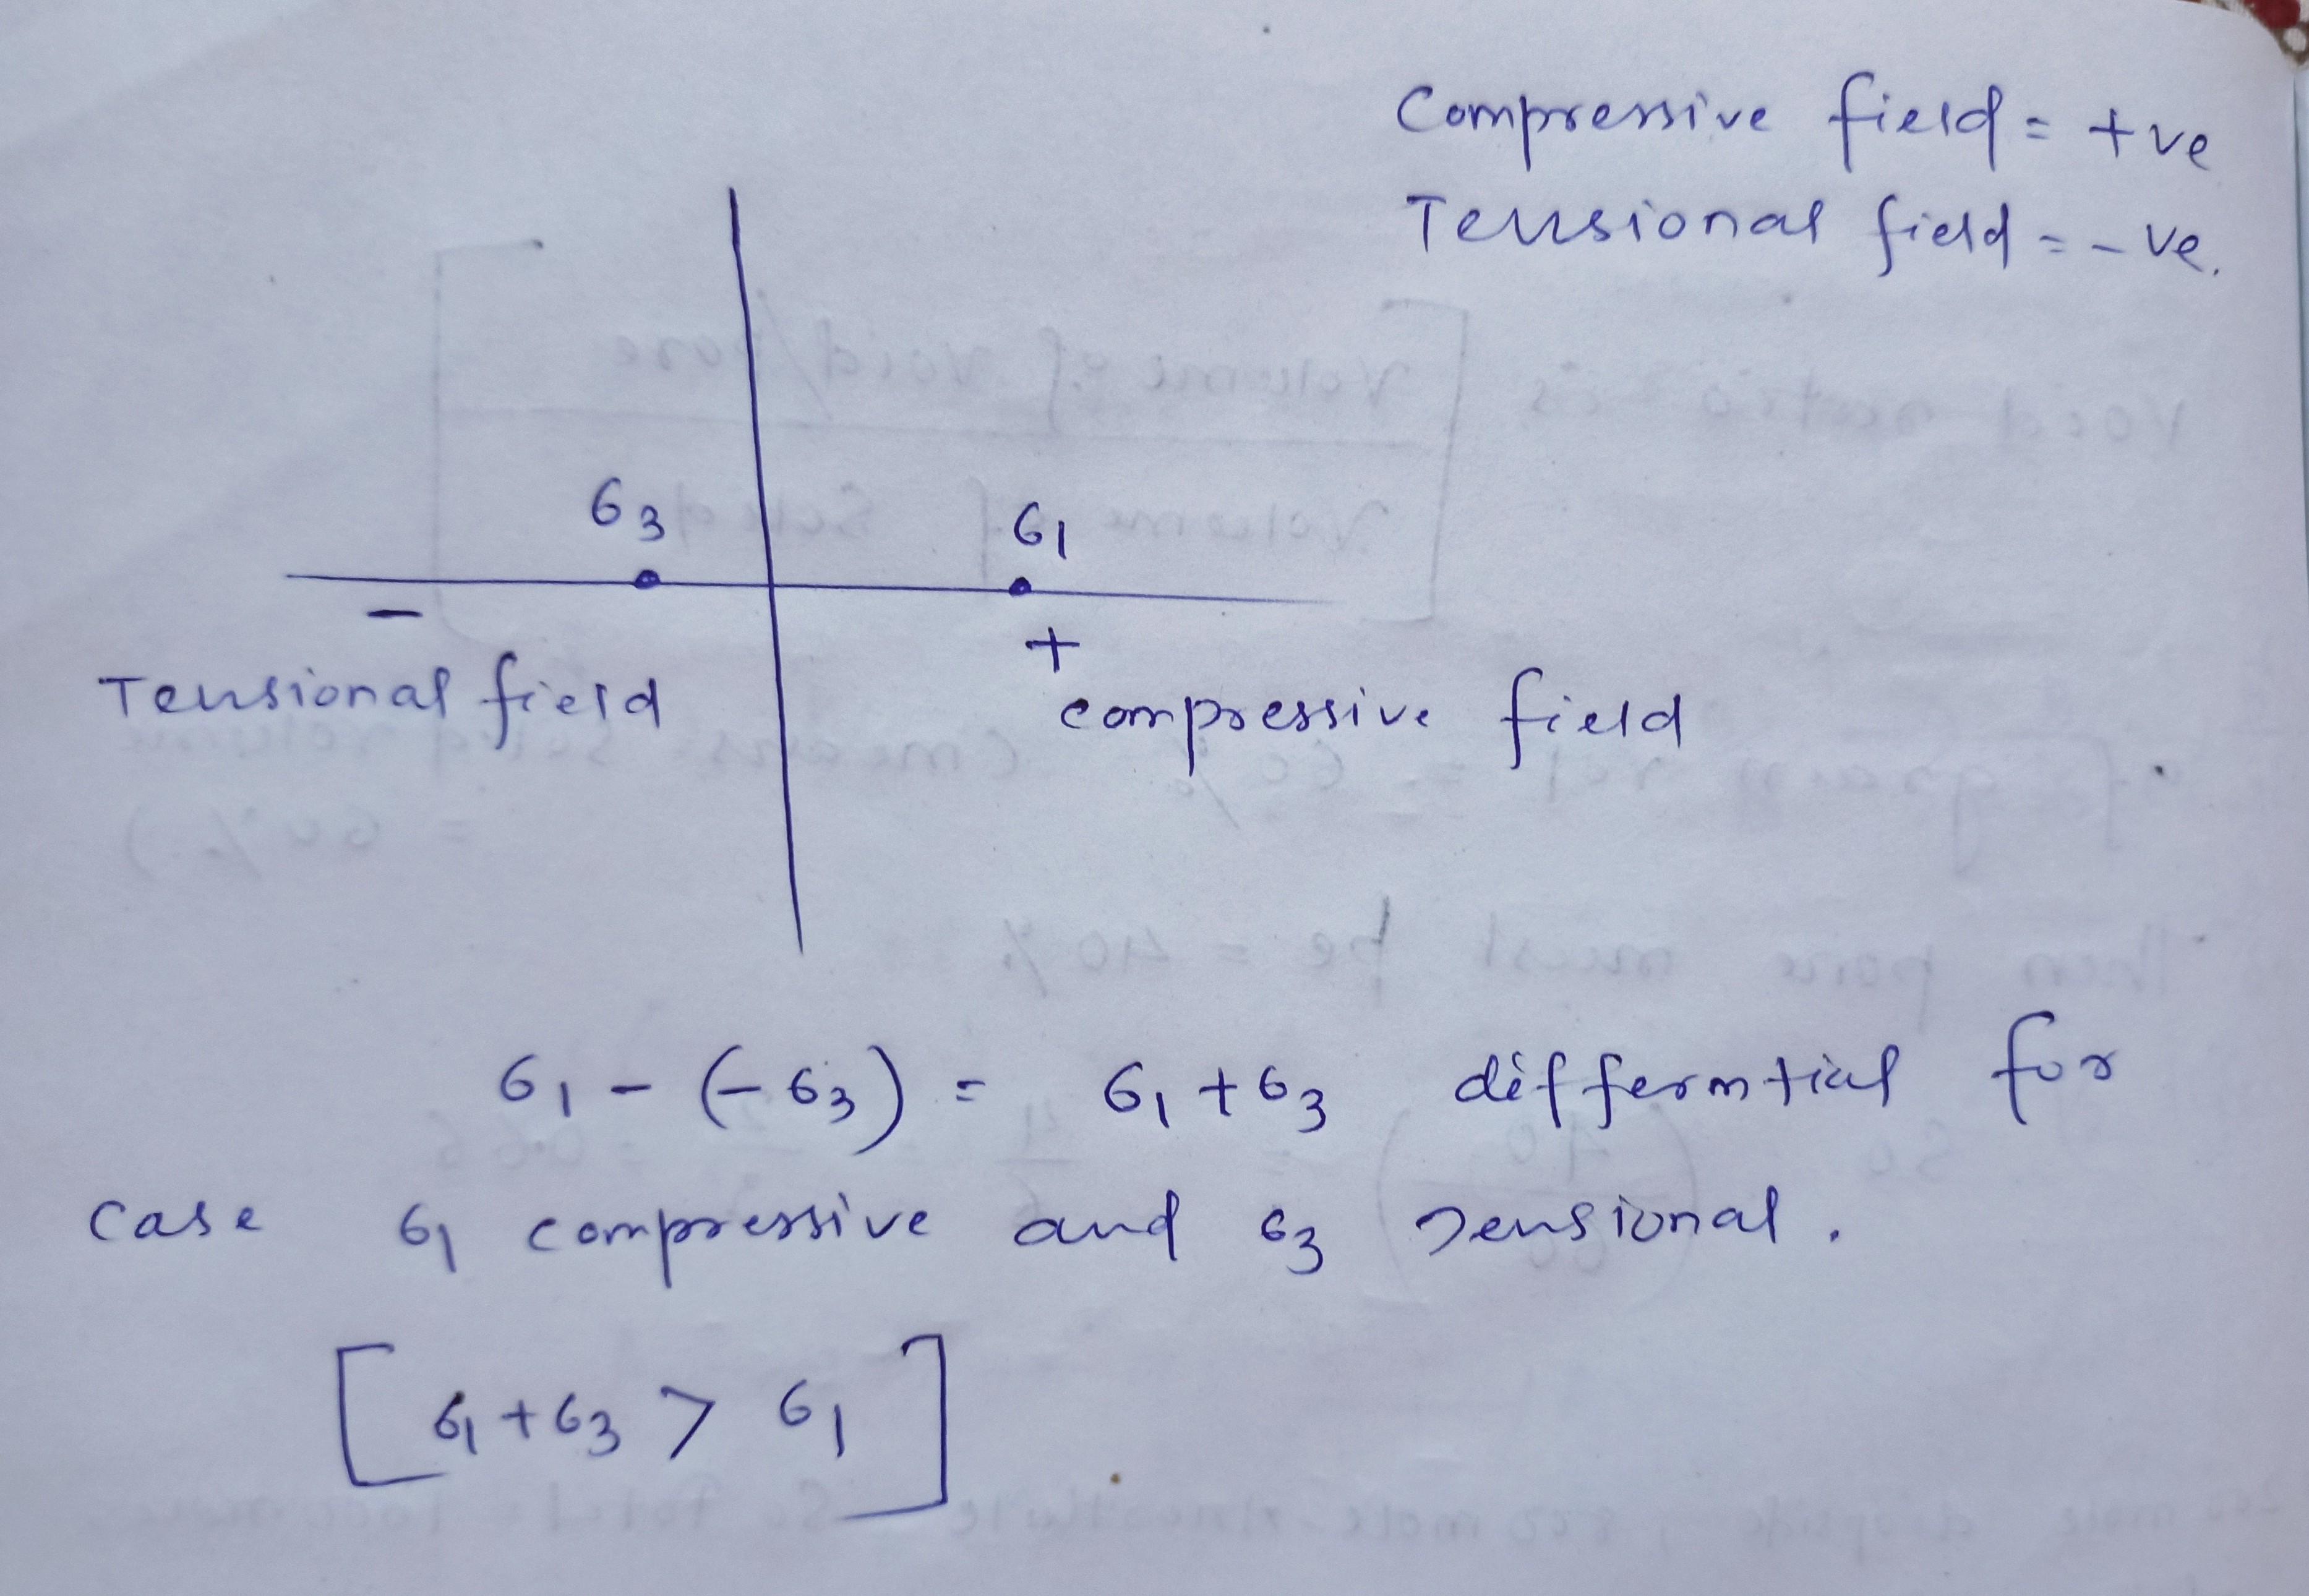 Compressive field = +ve
Tensional field = -ve.
σ3
σ1
−
+
Tensional field
compressive field
σ1 - (-σ3) = σ1 + σ3 differmtial for
case σ1 compressive and σ3 Tensional.
[σ1+σ3 > σ1]